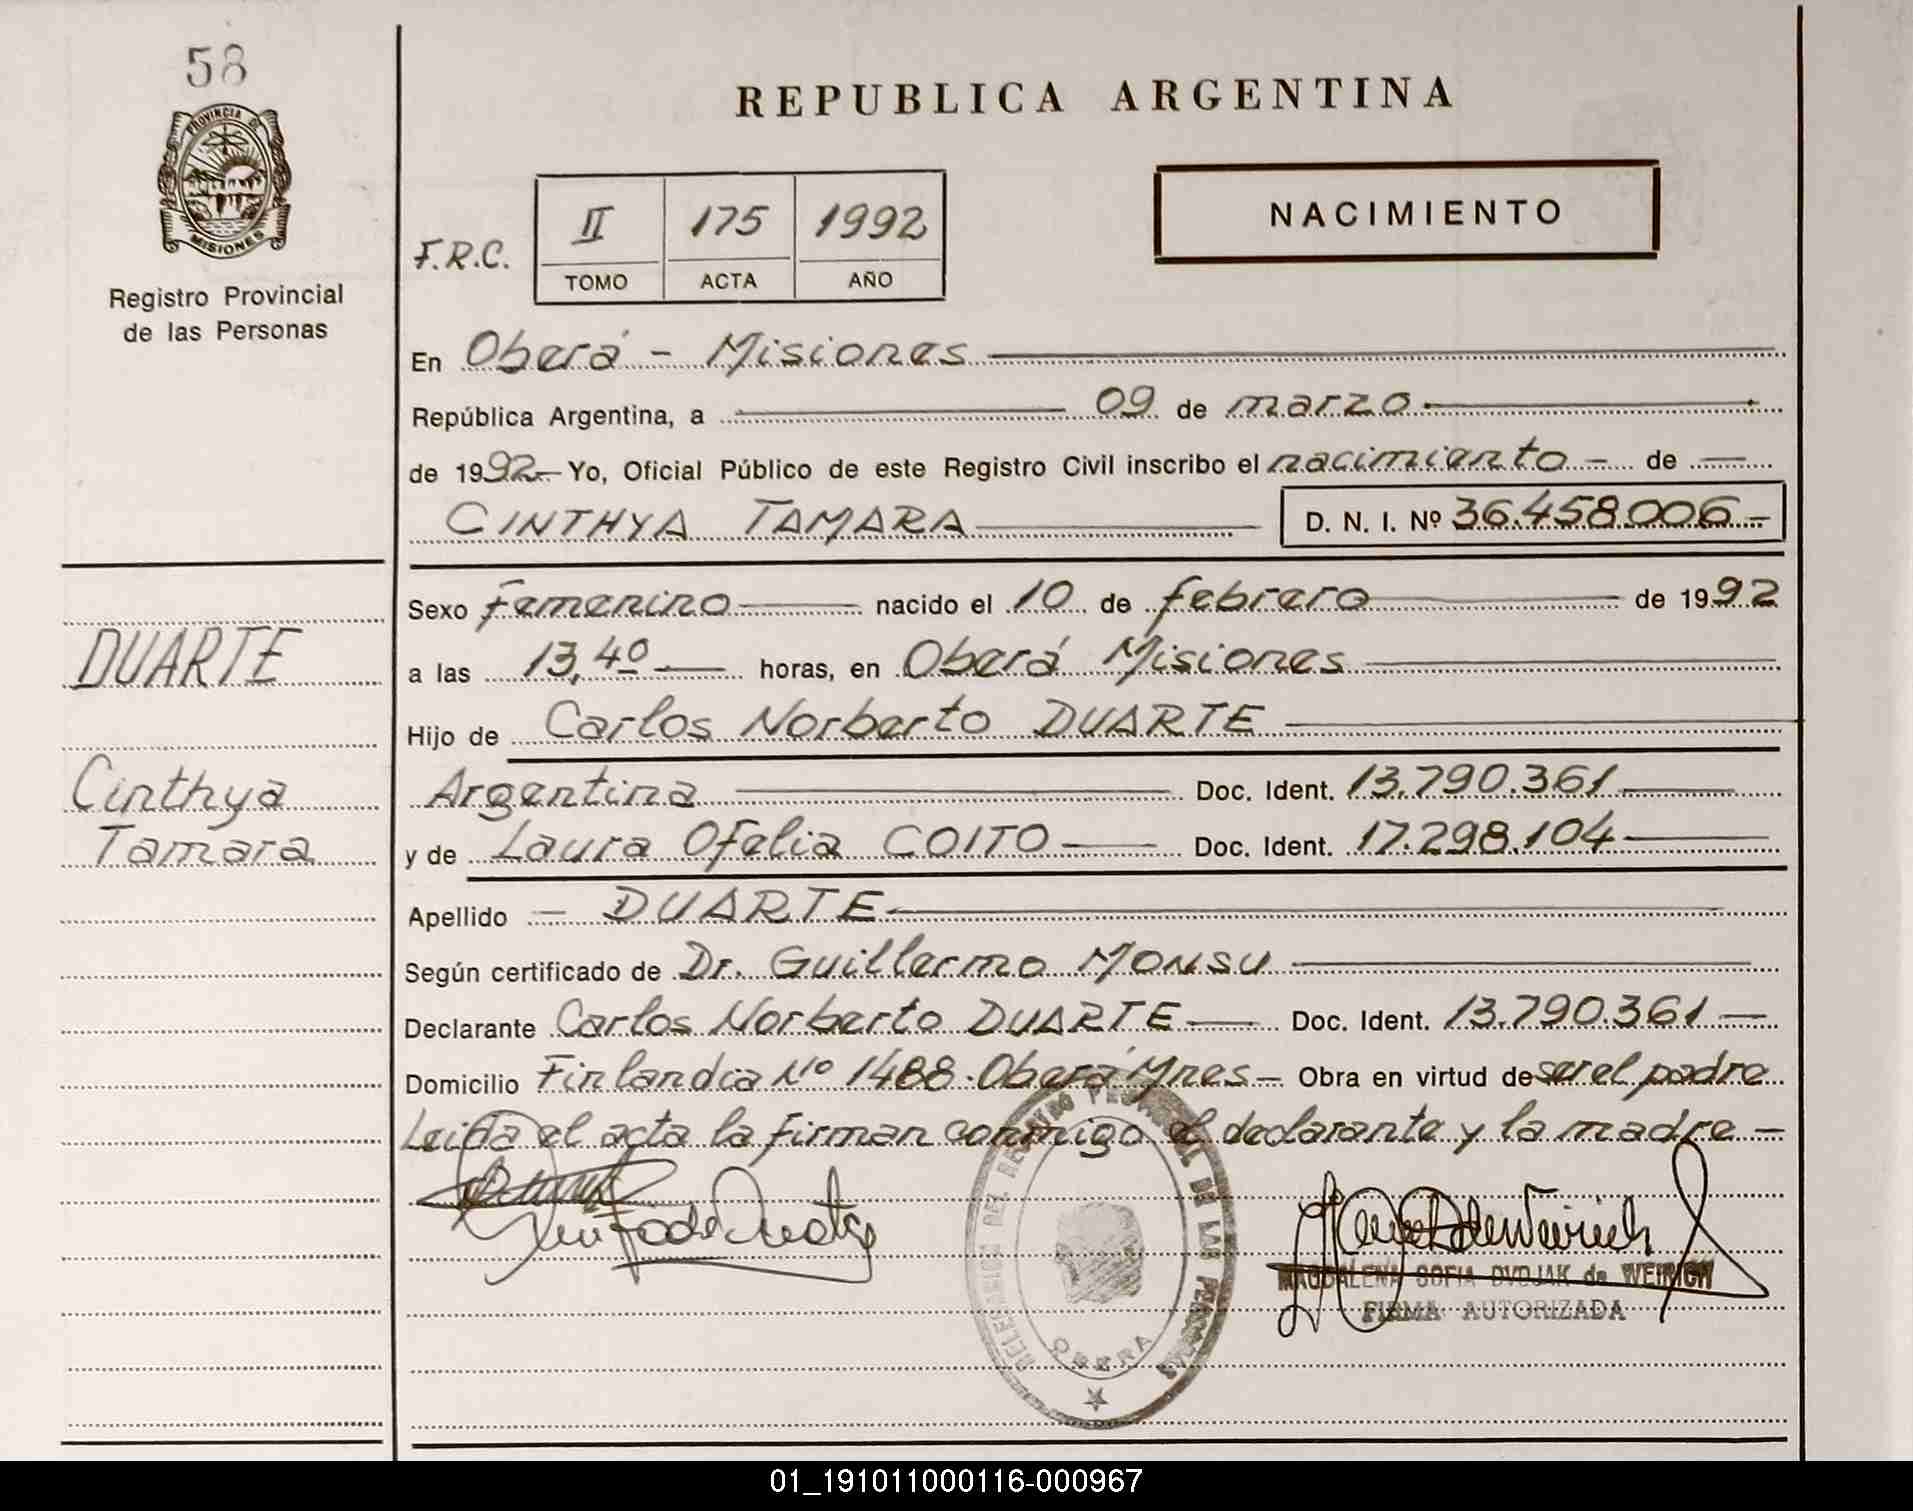 58
PROVINCIA DE
MISIONES
Registro Provincial
de las Personas
REPUBLICA ARGENTINA
NACIMIENTO
F.R.C.
II 175 1992
TOMO ACTA AÑO
En Oberá - Misiones
República Argentina, a 09 de marzo
de 1992 Yo, Oficial Público de este Registro Civil inscribo el nacimiento - de
CINTHYA TAMARA D. N. I. Nº 36.458.006-
Sexo Femenino nacido el 10 de febrero de 1992
a las 13,40 horas, en Oberá Misiones
Hijo de Carlos Norberto DUARTE
Argentina Doc. Ident. 13.790.361
y de Laura Ofelia COITO Doc. Ident. 17.298.104
Apellido - DUARTE
Según certificado de Dr. Guillermo MONSU
Declarante Carlos Norberto DUARTE Doc. Ident. 13.790.361
Domicilio Finlandia Nº 1488. Oberá Mnes - Obra en virtud de ser el padre
Leida el acta la firman conmigo el declarante y la madre -
DUARTE
Cinthya
Tamara
DELEGACION DEL REGISTRO PROVINCIAL DE LAS PERSONAS
OBERA
MAGDALENA SOFIA DVOJAK de WEIRICH
FIRMA AUTORIZADA
01_191011000116-000967